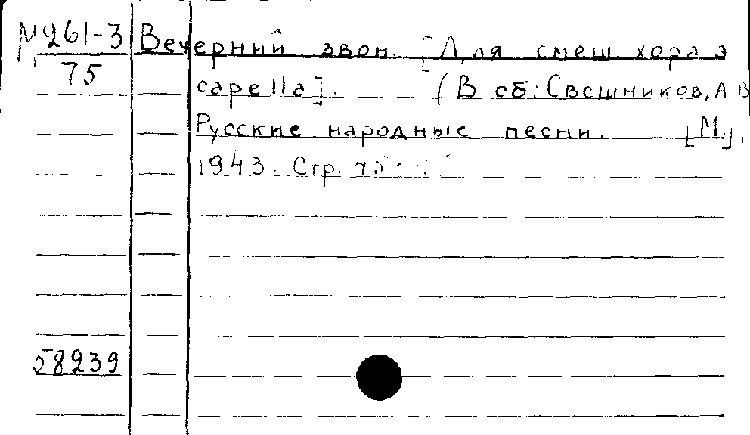 М261-3 Вечерний звон. [Для смеш хора a
75 capella]. (В сб: Свешников, А В
Русские народные песни. [М],
1943. Стр. 75
58239